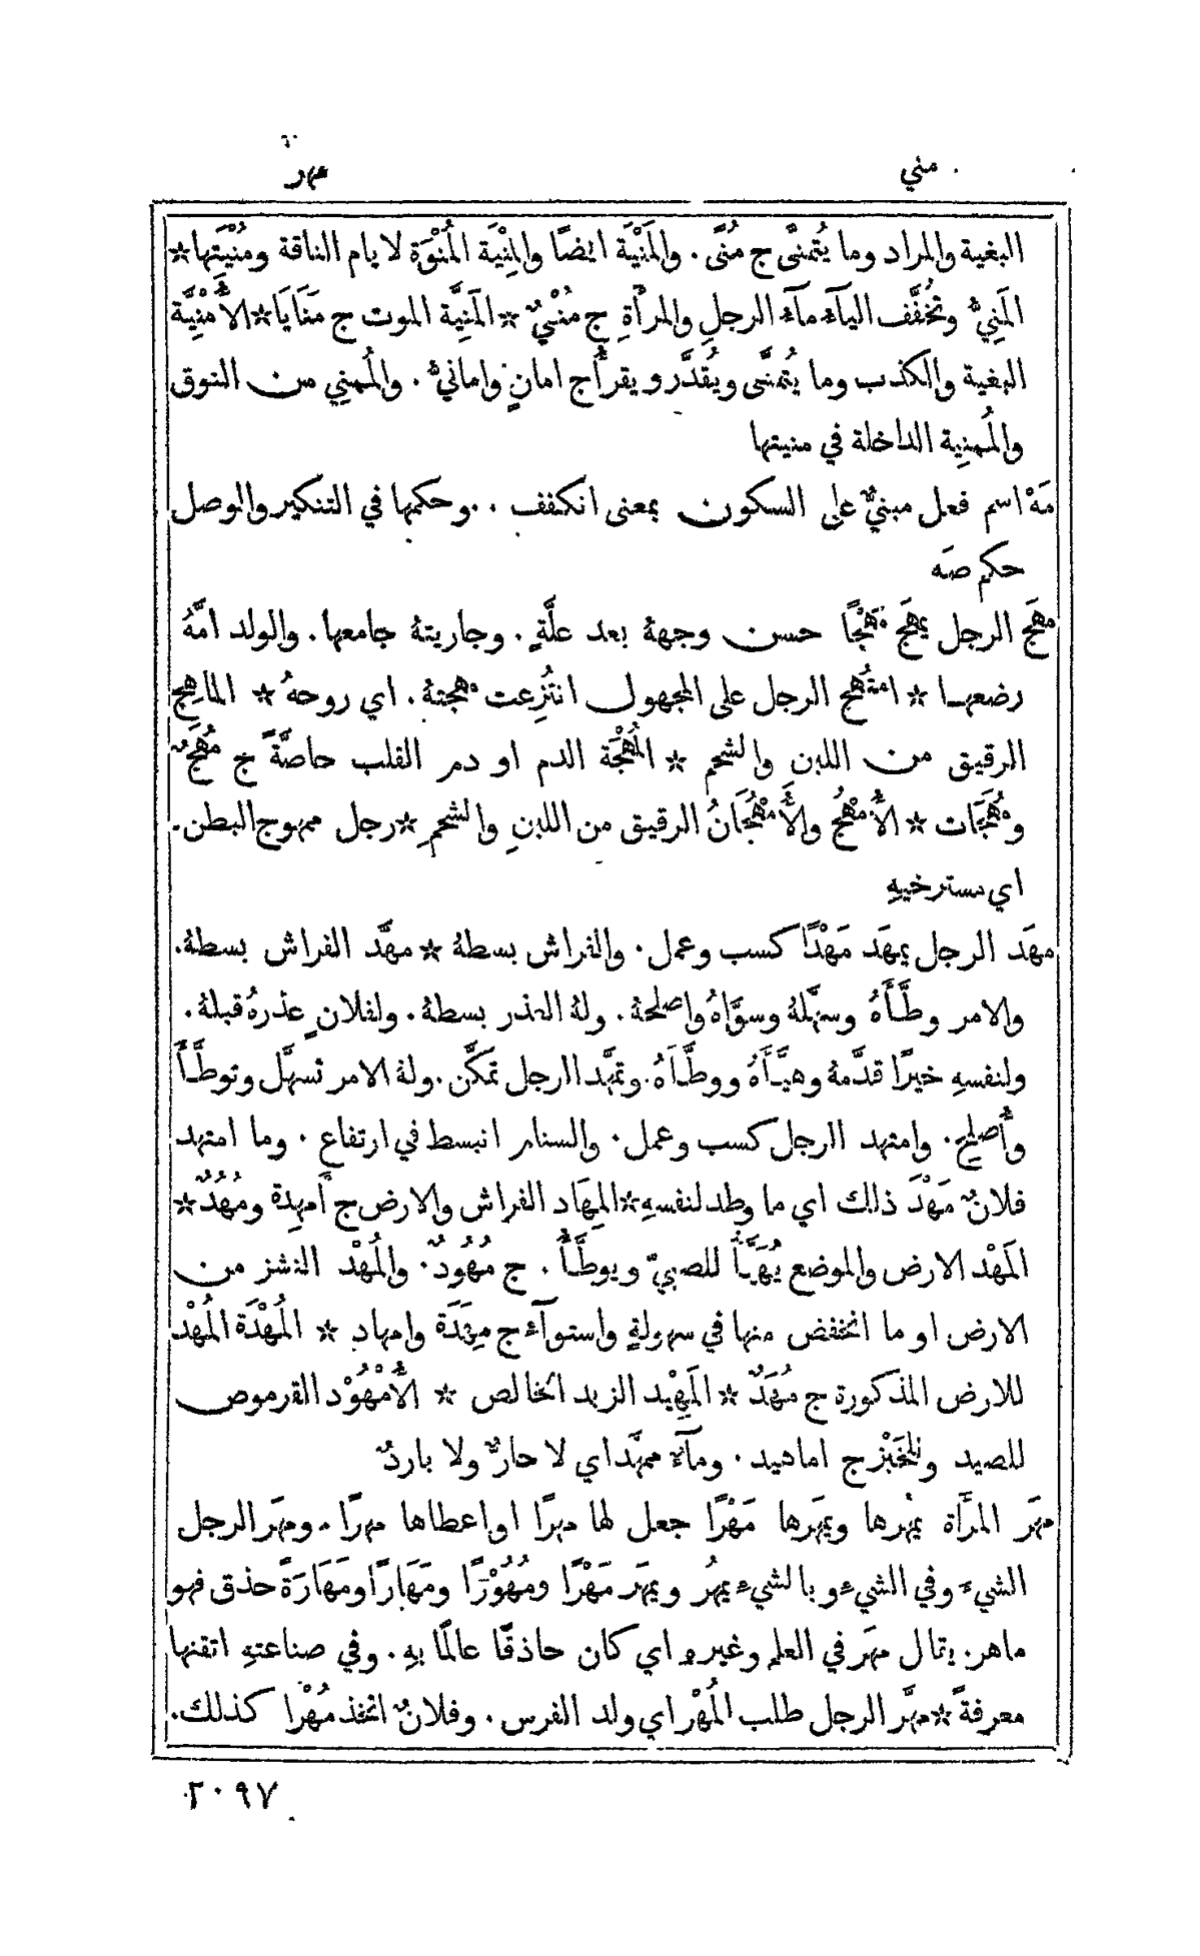 مني
مهر
البغية والمراد وما يُتمنَّى ج مُنًى . والمَنْيَة ايضًا والمِنْيَة المُنْوَة لايام الناقة ومُنْيَتها *
المَنِيُّ وتخُفَّف اليآءَ مآءُ الرجلِ والمرأَةِ ج مُنْيٌ * المَنِيَّة الموت ج مَنَايَا * الأُمْنِيَّة
البغية والكذب وما يُتمنَّى ويُقدَّر ويقرأُ ج امانٍ وامانيُّ . والمُمنِي من النوق
والمُمنِية الداخلة في منيتها
مَهْ اسم فعل مبنيٌّ على السكون بمعنى انكفف . . وحكمها في التنكير والوصل
حكم صَه
مهَج الرجل يمهَج مَهْجًا حسن وجههُ بعد علَّةٍ . وجاريتهُ جامعها . والولد امَّهُ
رضعها * امتُهج الرجل على المجهول انتُزِعت مهجتهُ . اي روحهُ * الماهِج
الرقيق من اللبن والشحم * المُهْجَة الدم او دم القلب خاصَّةً ج مُهَجٌ
ومُهَجَات * الأُمْهُج والأُمْهُجَانُ الرقيق من اللبنِ والشحمِ * رجل ممهوج البطن .
اي مسترخيهِ
مهَد الرجل يمهَد مَهْدًا كسب وعمل . والفراش بسطهُ * مهَّد الفراش بسطهُ .
والامر وطَّأَهُ وسهَّلهُ وسوَّاهُ واصلحهُ . ولهُ العذر بسطهُ . ولفلانٍ عذرهُ قبلهُ .
ولنفسهِ خيرًا قدَّمهُ وهيَّأَهُ ووطَّأَهُ . وتمهَّد الرجل تمَكَّن . ولهُ الامر تسهَّل وتوطَّأَ
وأُصلِح . وامتهد الرجل كسب وعمل . والسنام انبسط في ارتفاع . وما امتهد
فلانٌ مَهْدَ ذلك اي ما وطد لنفسهِ * المِهَاد الفراش والارض ج أَمهِدة ومُهُدٌ *
المَهْد الارض والموضع يُهَيَّأُ للصبيّ ويوطَّأُ . ج مُهُودٌ . والمُهْد النشز من
الارض او ما انخفض منها في سهولةٍ واستوآءٍ ج مِهَدَة وامهاد * المُهْدَة المُهْد
للارض المذكورة ج مُهَدٌ * المَهِيْد الزبد الخالص * الأُمْهُوْد القرموص
للصيد وللخَبْز ج اماهيد . ومآءٌ ممهَّد اي لا حارٌّ ولا باردٌ
مهَر المرأَة يمهُرها ويمهَرها مَهْرًا جعل لها مهرًا او اعطاها مهرًا . ومهَر الرجل
الشيءَ وفي الشيءِ وبالشيءِ يمهُر ويمهَر مَهْرًا ومُهُوْرًا ومَهَارًا ومَهَارَةً حذق فهو
ماهر . يقال مهَر في العلم وغيرهِ اي كان حاذقًا عالمًا بهِ . وفي صناعتهِ اتقنها
معرفةً * مهَّر الرجل طلب المُهْر اي ولد الفرس . وفلانٌ اتخذ مُهْرا كذلك .
٢٠٩٧